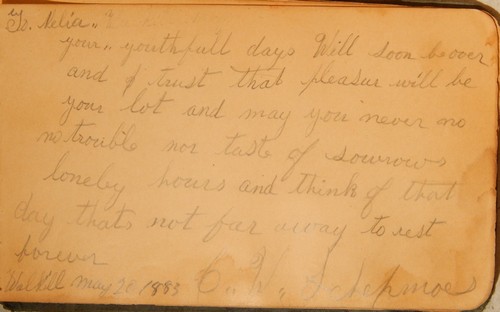 To. Nelia,,
your,, youthfull days Will soon be over
and I trust that pleasur will be
your lot and may you never no
no trouble nor taste of sowrows
loneby hours and think of that
day thats not far away to rest
forever
Walkill may 2 1883 C. W.